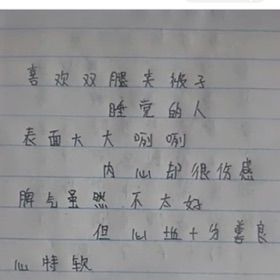 喜欢双腿夹被子
睡觉的人
表面大大咧咧
内心却很伤感
脾气虽然不太好
但心地十分善良
心特软